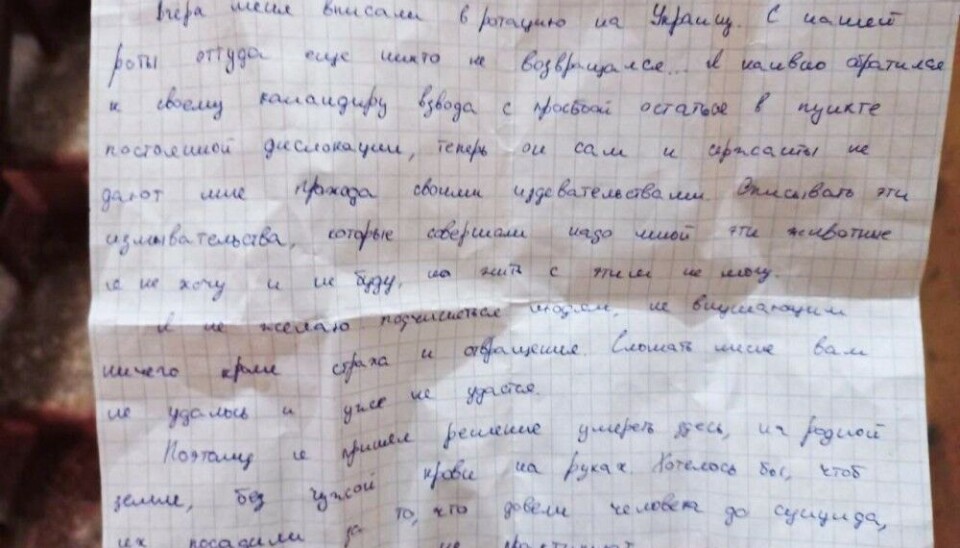 Вчера меня вписали в ротацию на Украину. С нашей
роты оттуда еще никто не возвращался... Я наивно обратился
к своему командиру взвода с просьбой остаться в пункте
постоянной дислокации, теперь он сам и сержанты не
дают мне прохода своими издевательствами. Описывать эти
измывательства, которые совершали надо мной эти животные
я не хочу и не буду, но жить с этим не могу.
Я не желаю подчиняться людям, не внушающим
ничего кроме страха и отвращения. Сломать меня вам
не удалось и уже не удастся.
Поэтому я пришел решение умереть здесь, на родной
земле, без чужой крови на руках. Хотелось бы, чтоб
их посадили за то, что довели человека до суицида,
не